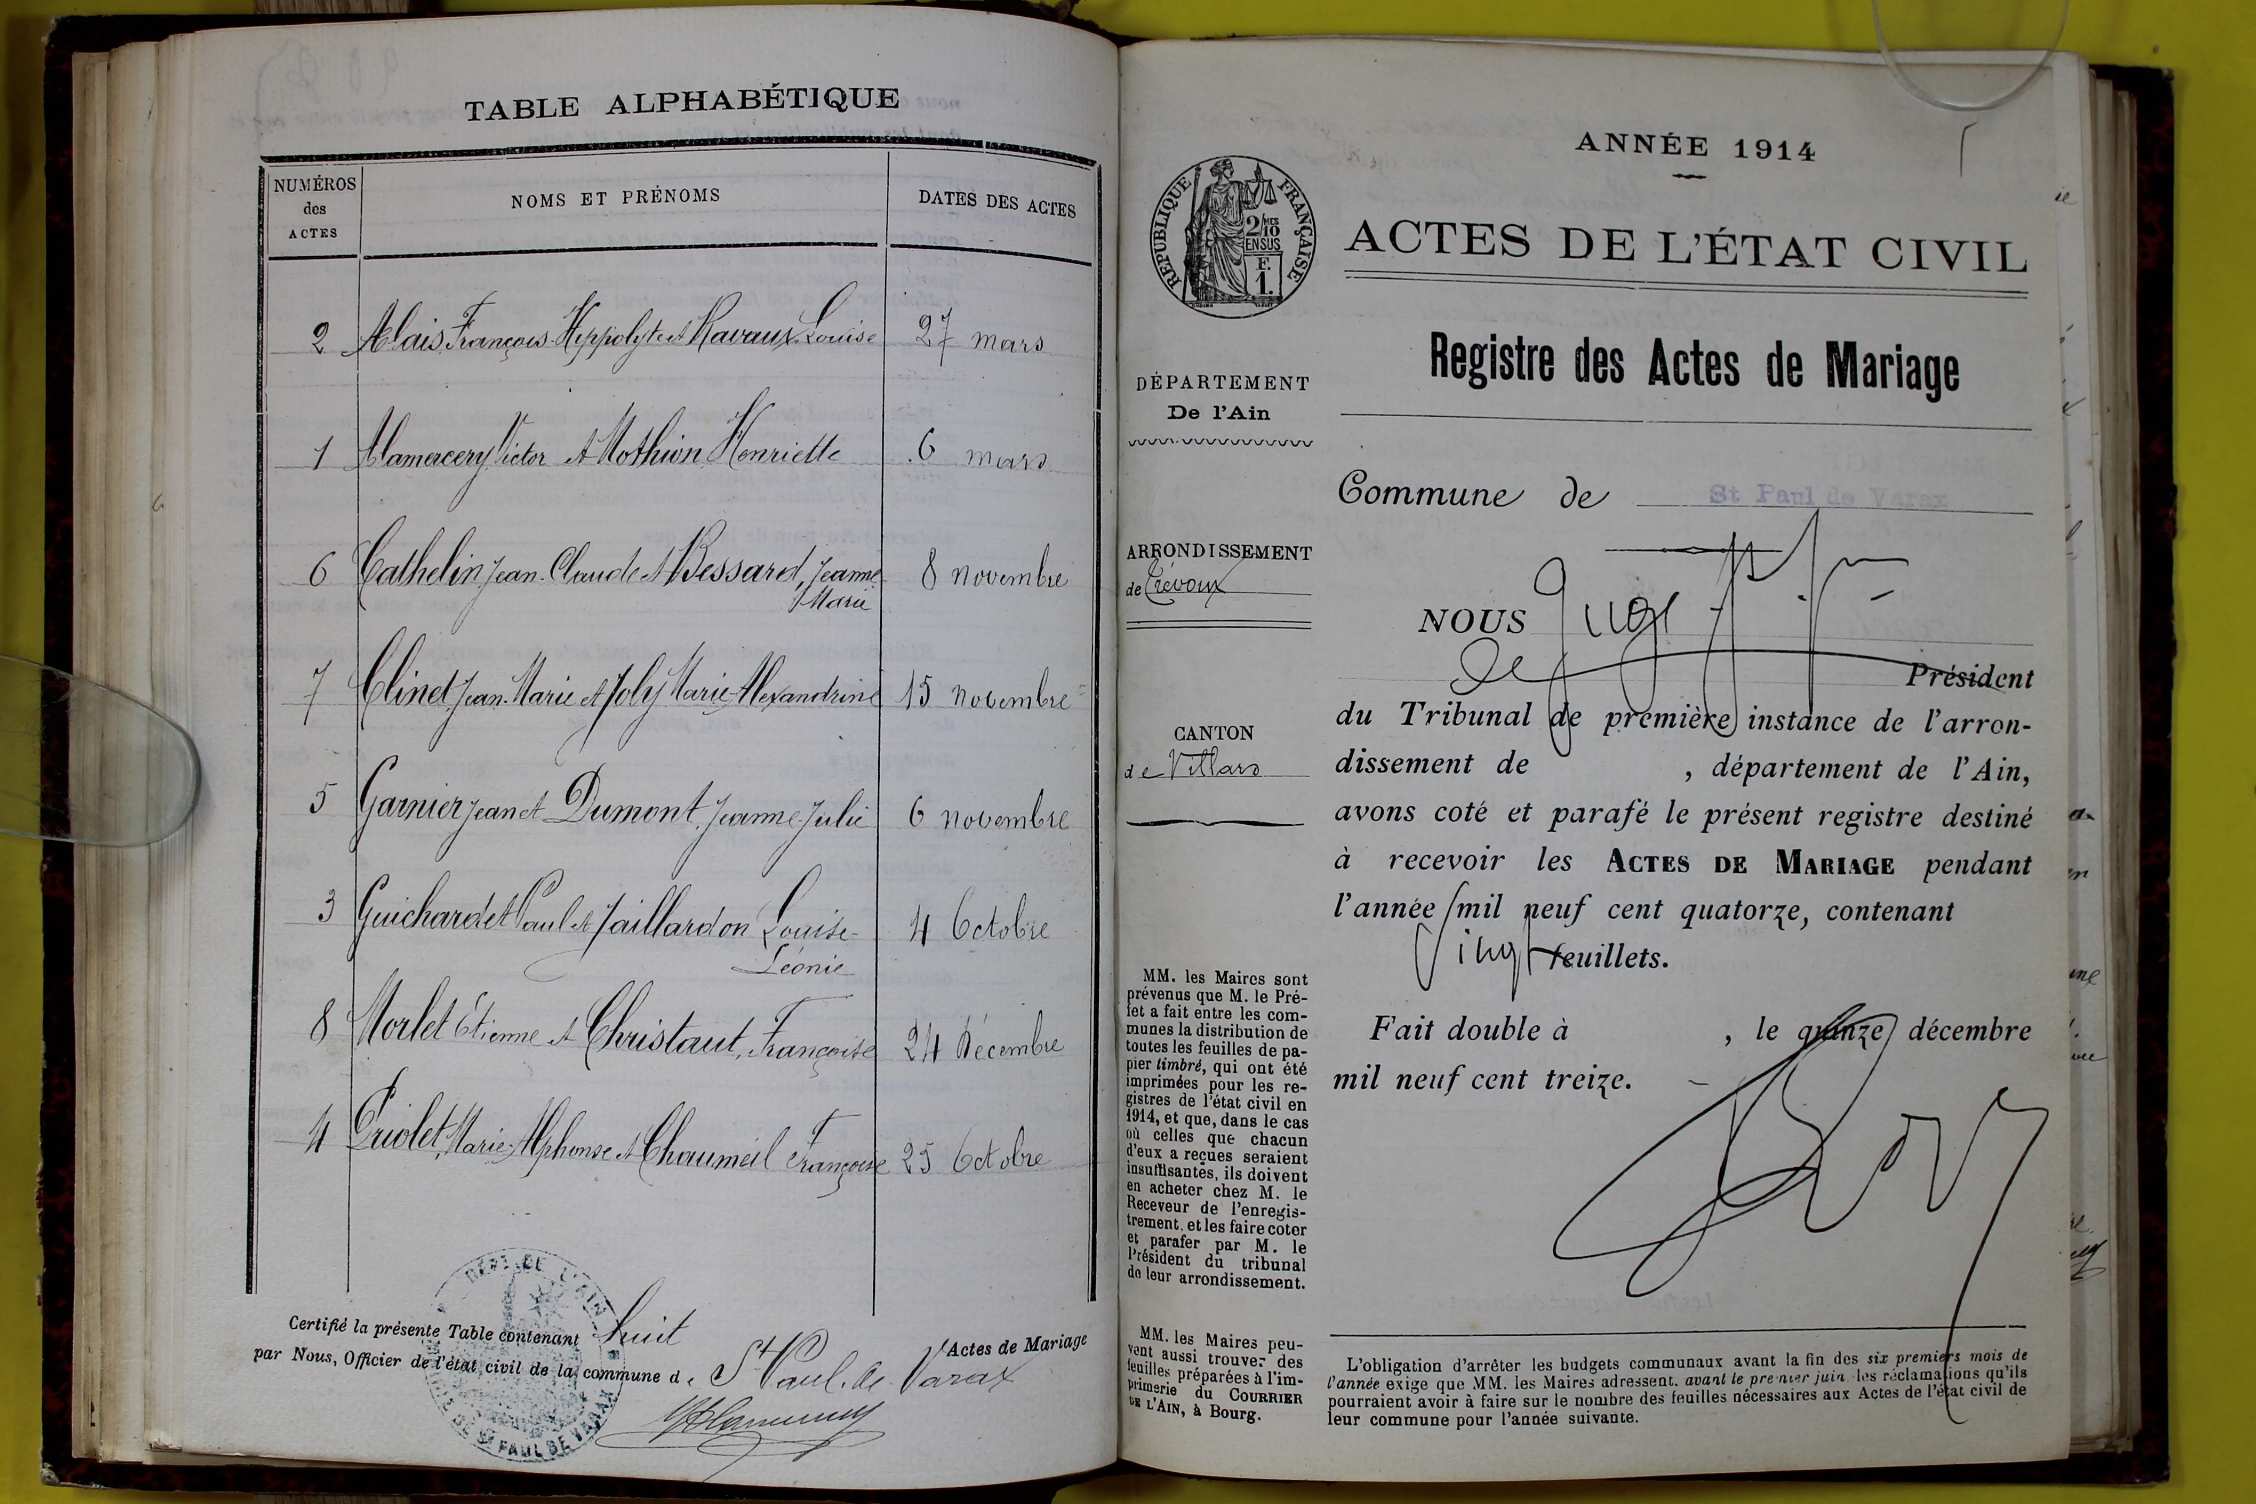 TABLE ALPHABÉTIQUE
NUMÉROS
des
ACTES
NOMS ET PRÉNOMS
DATES DES ACTES
2 Alais François-Hippolyte et Ravaux Louise 27 mars
1 Alamercery Victor et Mothion Henriette 6 mars
6 Cathelin Jean-Claude et Bessard, Jeanne 8 novembre
Marie
7 Clinet Jean-Marie et Joly Marie-Alexandrine 15 novembre
5 Garnier Jean et Dumont Jeanne-Julie 6 novembre
3 Guichardet Paul et Jaillardon Louise- 4 Octobre
Léonie
8 Morlet Étienne et Christaut, Françoise 24 Décembre
4 Priolet, Marie-Alphonse et Chaumeil Françoise 25 Octobre
Certifié la présente Table contenant huit Actes de Mariage
par Nous, Officier de l'état civil de la commune d e St Paul-de-Varax
DÉPT. DE L'AIN
MAIRIE DE ST PAUL DE VARAX
ANNÉE 1914
RÉPUBLIQUE FRANÇAISE
2/MES
10
EN SUS
F.
1.
ACTES DE L'ÉTAT CIVIL
Registre des Actes de Mariage
DÉPARTEMENT
De l'Ain
Commune de St Paul de Varax
ARRONDISSEMENT
de Trévoux
CANTON
de Villars
NOUS Juge
de
Président
du Tribunal de première instance de l'arron-
dissement de , département de l'Ain,
avons coté et parafé le présent registre destiné
à recevoir les ACTES DE MARIAGE pendant
l'année mil neuf cent quatorze, contenant
Vingt feuillets.
Fait double à , le quinze décembre
mil neuf cent treize.
MM. les Maires sont
prévenus que M. le Pré-
fet a fait entre les com-
munes la distribution de
toutes les feuilles de pa-
pier timbré, qui ont été
imprimées pour les re-
gistres de l'état civil en
1914, et que, dans le cas
où celles que chacun
d'eux a reçues seraient
insuffisantes, ils doivent
en acheter chez M. le
Receveur de l'enregis-
trement, et les faire coter
et parafer par M. le
Président du tribunal
de leur arrondissement.
MM. les Maires peu-
vent aussi trouver des
feuilles préparées à l'im-
primerie du COURRIER
DE L'AIN, à Bourg.
L'obligation d'arrêter les budgets communaux avant la fin des six premiers mois de
l'année exige que MM. les Maires adressent, avant le premier juin les réclamations qu'ils
pourraient avoir à faire sur le nombre des feuilles nécessaires aux Actes de l'état civil de
leur commune pour l'année suivante.